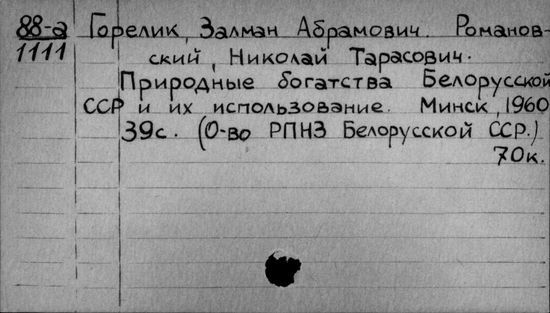 88-а Горелик, Залман Абрамович. Романов-
1111 ский, Николай Тарасович.
Природные богатства Белорусской
ССР и их использование. Минск, 1960
39с. (О-во РПНЗ Белорусской ССР.)
70к.